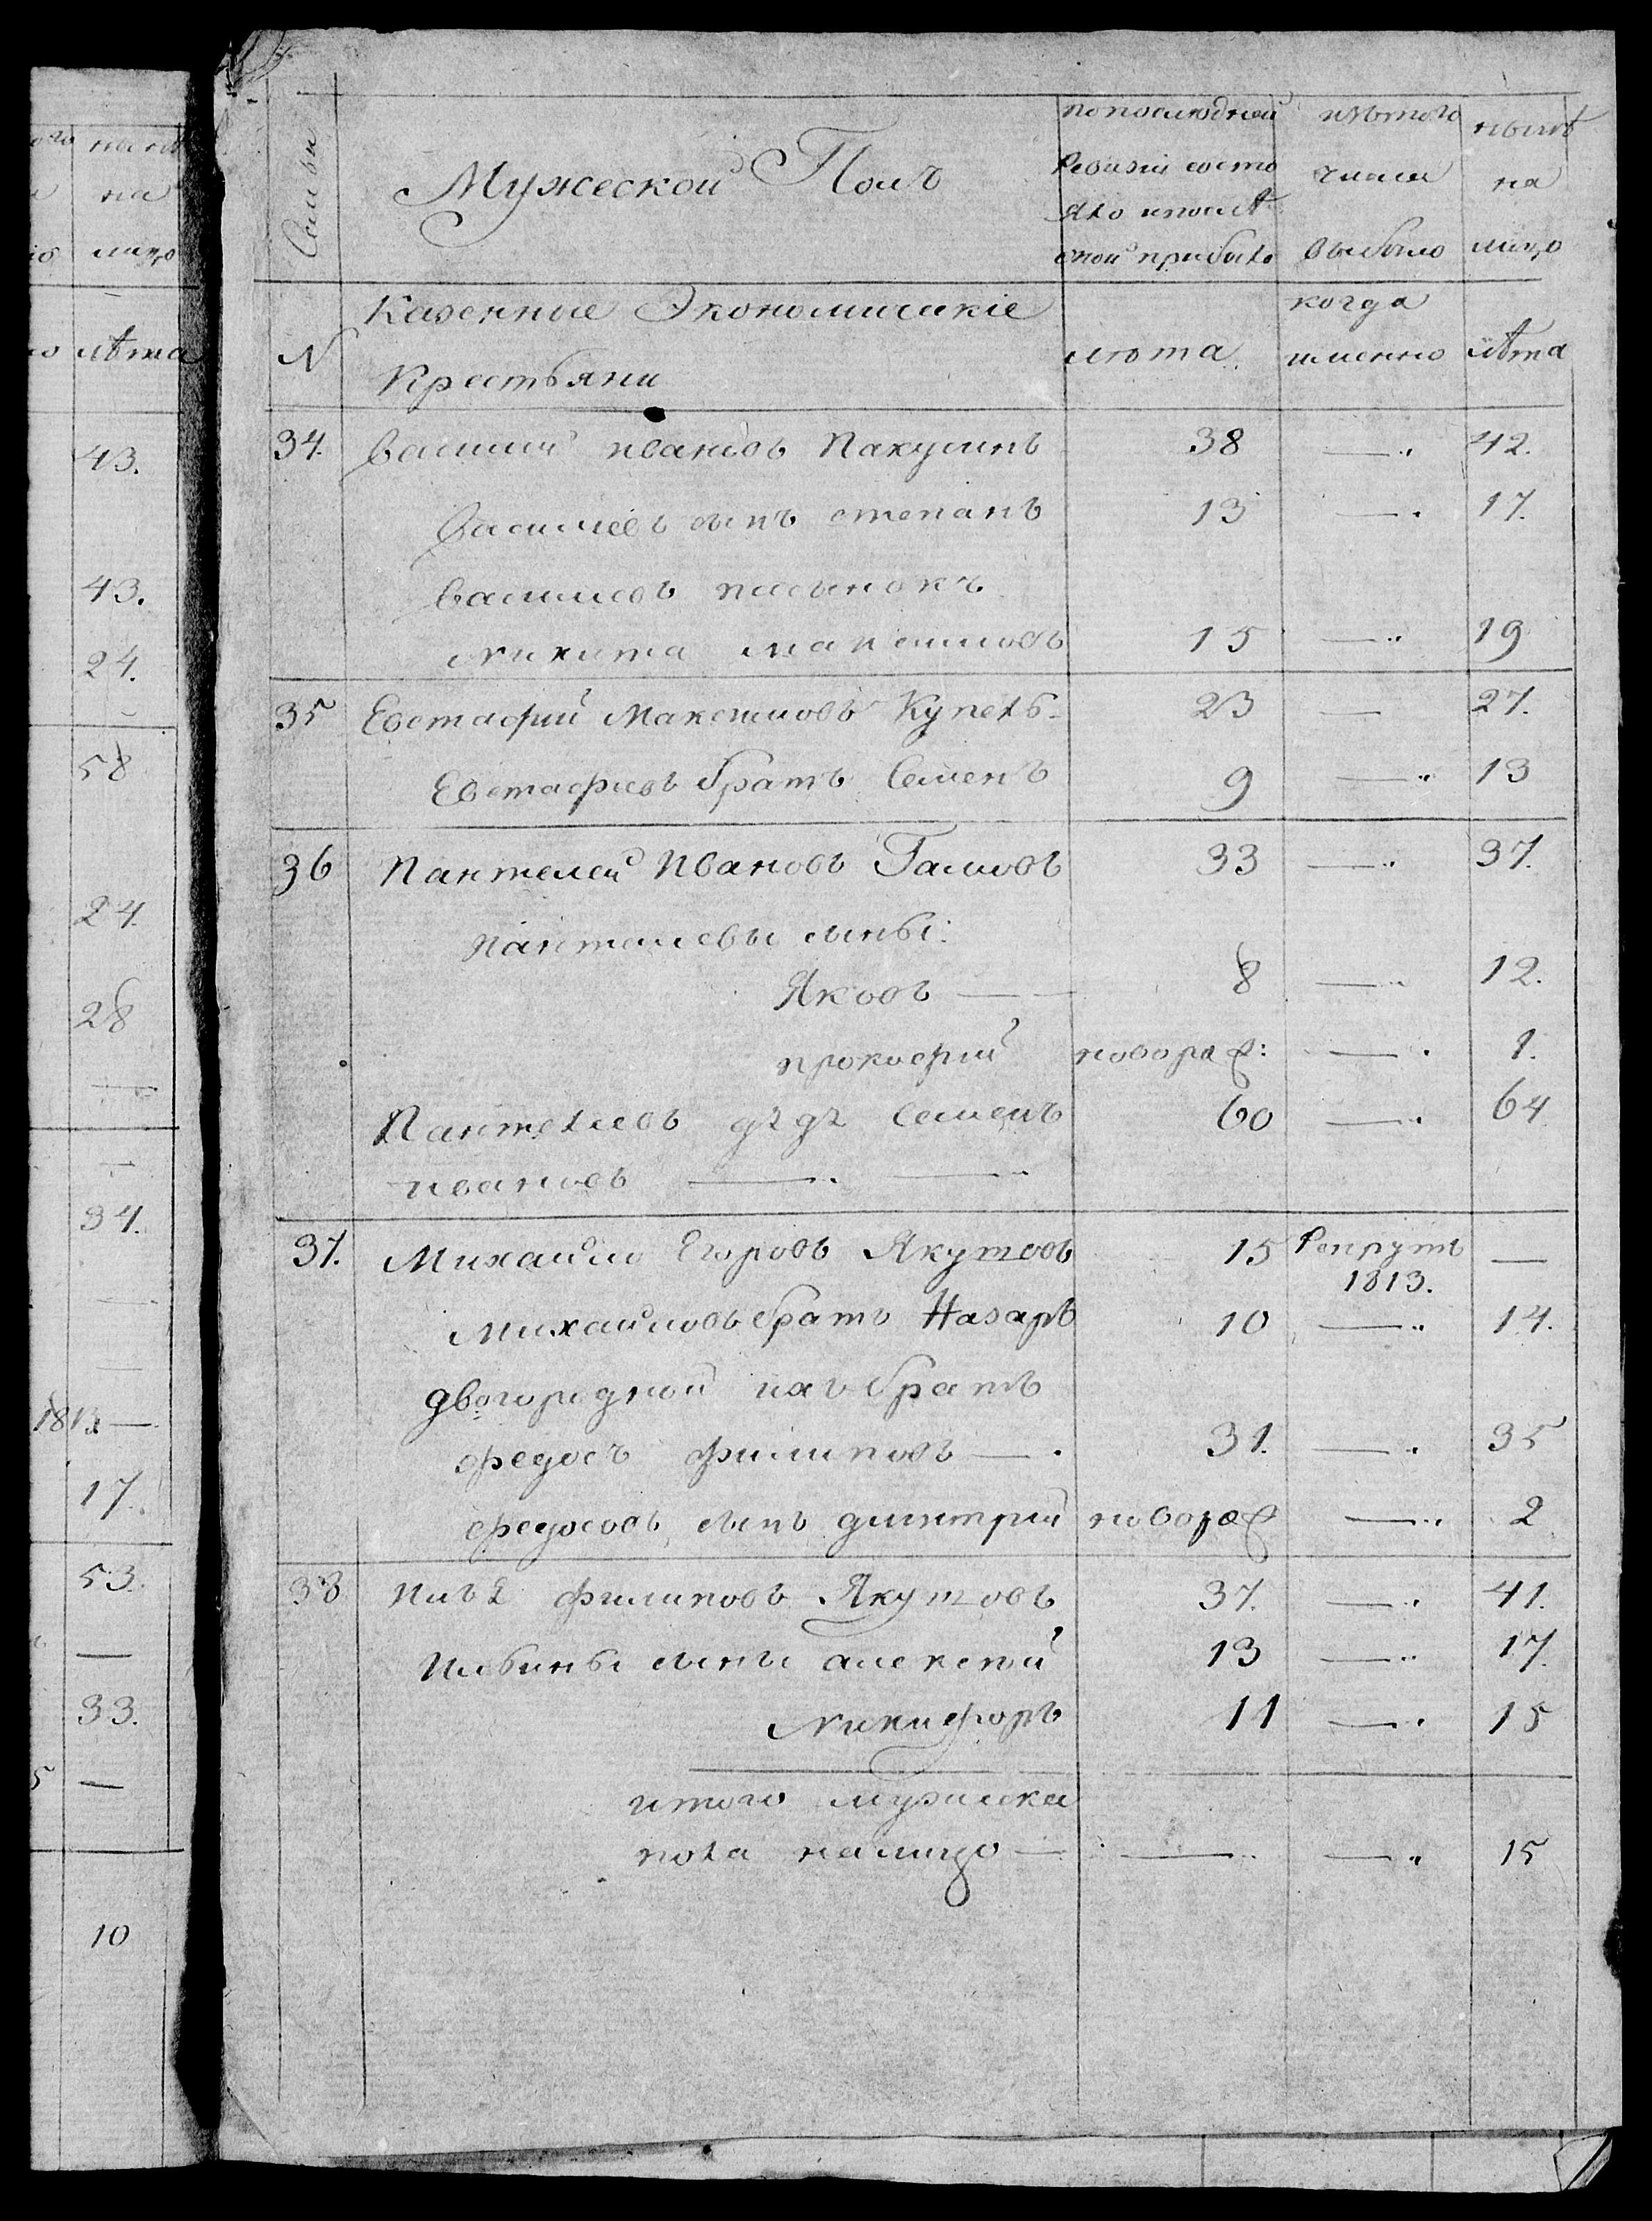 ого нынѣ
на
лицо
лѣта
43.
43.
24.
58
24.
28
34.
1813 —
17.
53.
—
33.
5 —
10
Семьи
Мужеской Полъ
по последней ревизіи состояло и после оной прибыло
изъ того числа выбыло
нынѣ на лицо
N
Казенные Экономическіе
Крестьяни
лѣта
когда именно
лѣта
34. Василий Ивановъ Пакулинъ 38 — 42.
Васильевъ сынъ степанъ 13 — 17.
Васильевъ пасынокъ
Никита Максимовъ 15 — 19
35 Евстафий Максимовъ Купецъ 23 — 27.
Евстафьевъ братъ Семенъ 9 — 13
36 Пантелей Ивановъ Галиовъ 33 — 37.
Пантелеевы сыны:
Яковъ — 8 — 12.
прокофий новорож: — 1.
Пантелеевъ дядя Семенъ 60 — 64
ивановъ —
37. Михайло Егоровъ Якутовъ 15 Рекрутъ 1813. —
Михайловъ братъ Назаръ 10 — 14.
двоюродной ихъ братъ
федосъ филиповъ — 31. — 35
федосовъ сынъ димитрий новорож — 2
38 Илья филиповъ Якутовъ 37. — 41.
Ильины сыны алексѣй 13 — 17.
Никифоръ 11 — 15
итого мужеска
пола налицо — — — 15